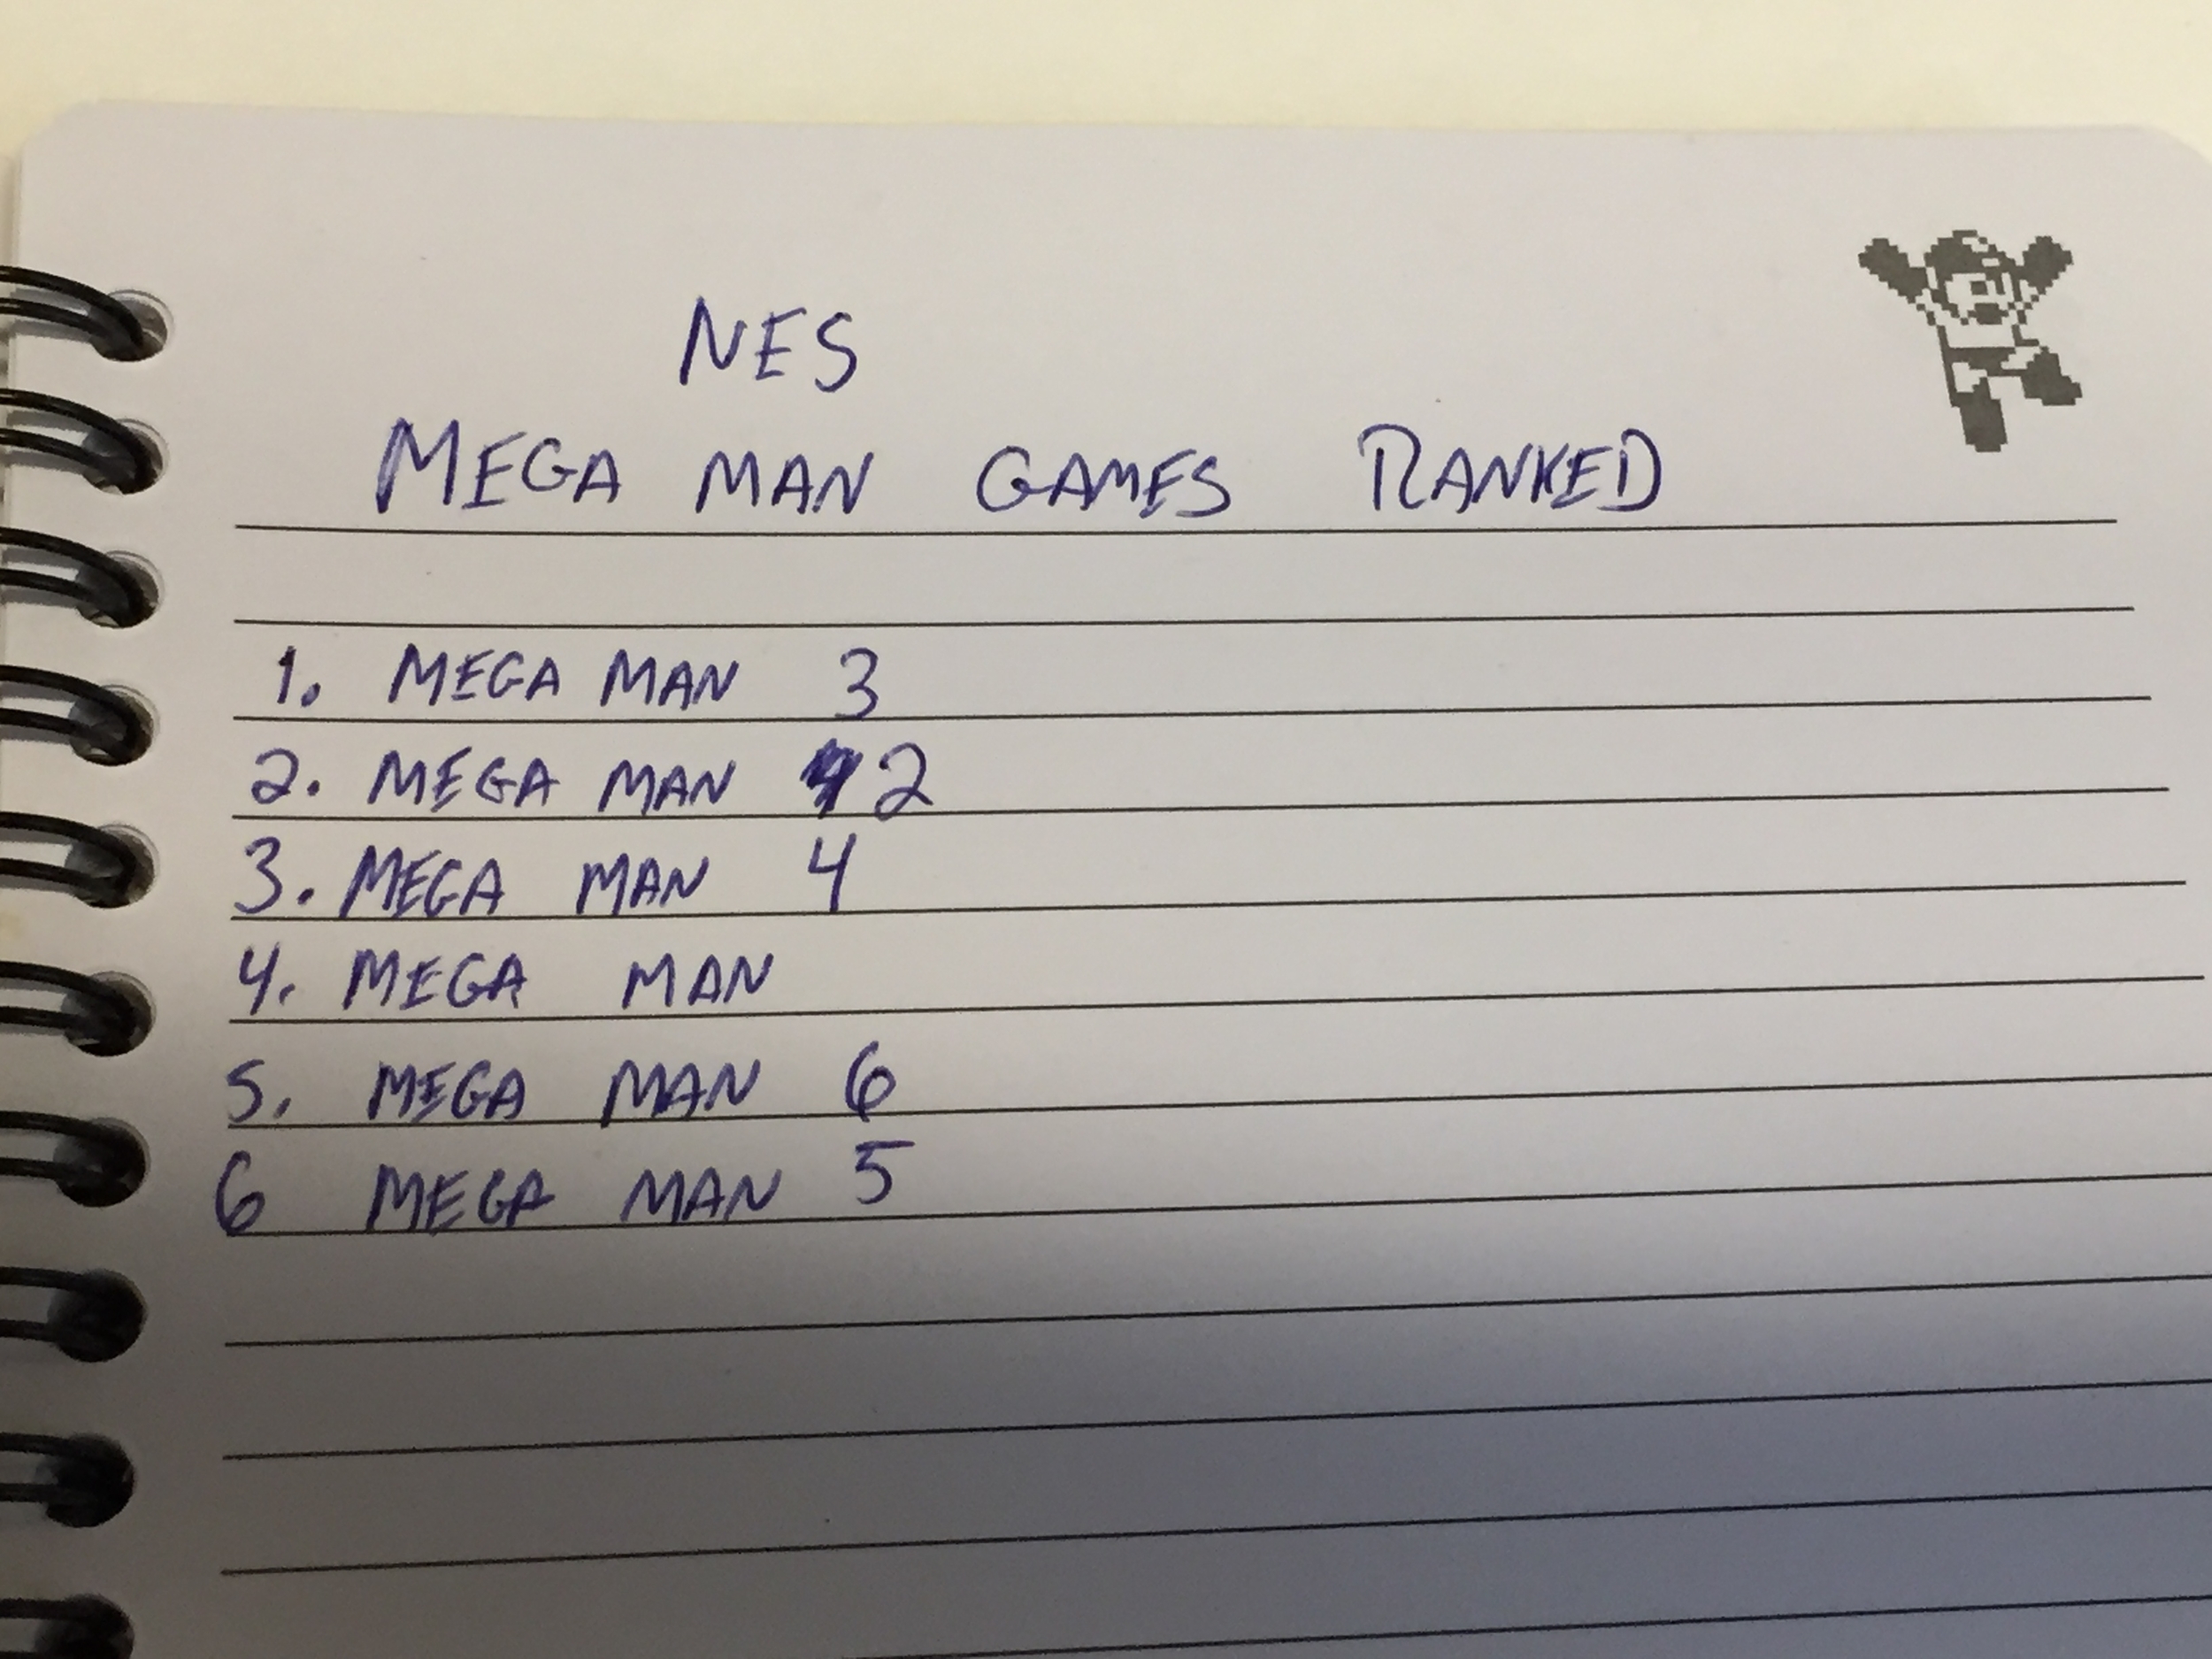 NES
MEGA MAN GAMES RANKED
1. MEGA MAN 3
2. MEGA MAN 2
3. MEGA MAN 4
4. MEGA MAN
5. MEGA MAN 6
6 MEGA MAN 5